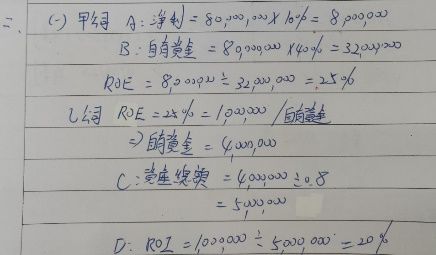 二、(一) 甲公司 A：淨利 = 80,000,000 × 10% = 8,000,000
B：自有資金 = 80,000,000 × 40% = 32,000,000
ROE = 8,000,000 ÷ 32,000,000 = 25%
乙公司 ROE = 25% = 1,000,000 / 自有資金
⇒ 自有資金 = 4,000,000
C：資產總額 = 4,000,000 ÷ 0.8
= 5,000,000
D：ROI = 1,000,000 ÷ 5,000,000 = 20%